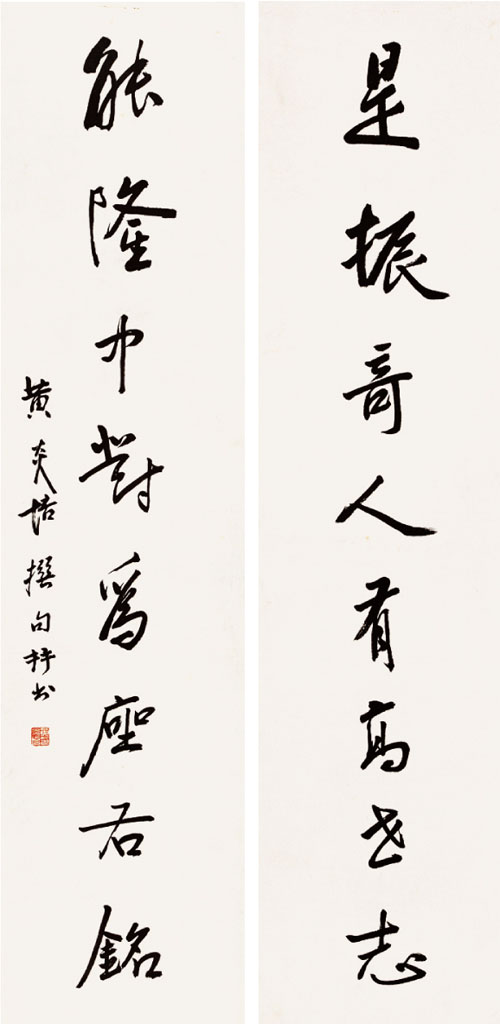 是振奇人有高世志
能隆中對爲座右銘
黄炎培撰句并书